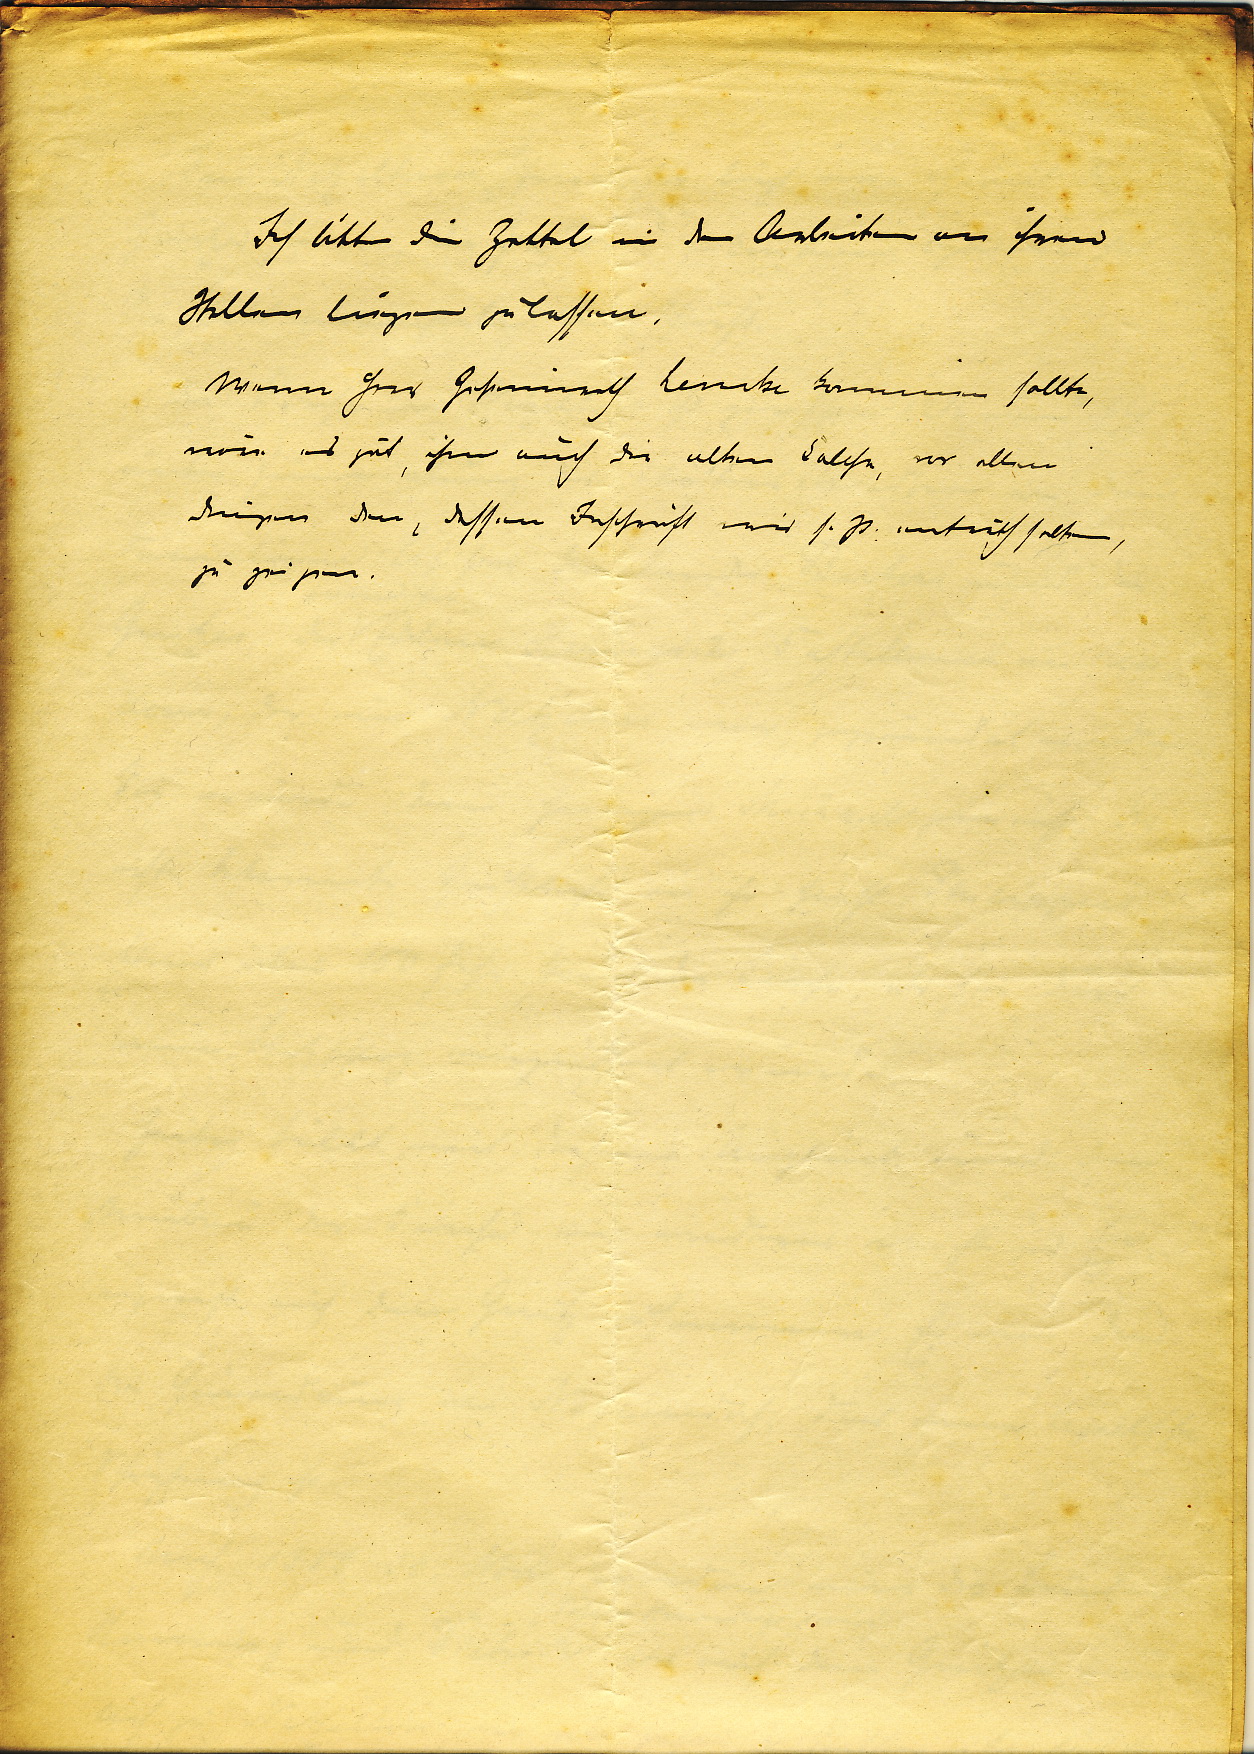 Ich bitte die Zettel in den Arbeiten an ihren
Stellen liegen zu lassen.
Wenn Herr Geheimrath Lemcke kommen sollte,
wäre es gut, ihm auch die alten vor allen
dingen den, dessen Inschrift wir s. Z. enträthselten,
zu zeigen.